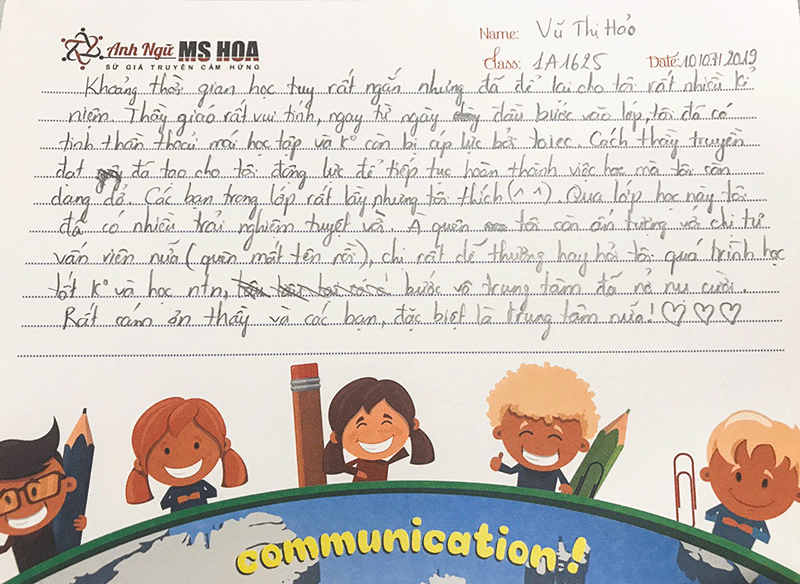 Anh Ngữ MS HOA
SỨ GIẢ TRUYỀN CẢM HỨNG
Name: Vũ Thị Hảo
Class: 1A1625 Date: 10/07/2019
Khoảng thời gian học tuy rất ngắn nhưng đã để lại cho tôi rất nhiều kỉ
niệm. Thầy giáo rất vui tính, ngay từ ngày đầu bước vào lớp, tôi đã có
tinh thần thoải mái học tập và k° còn bị áp lực bởi toiec. Cách thầy truyền
đạt đã tạo cho tôi động lực để tiếp tục hoàn thành việc học mà tôi còn
dang dở. Các bạn trong lớp rất lầy nhưng tôi thích (^ ^). Qua lớp học này tôi
đã có nhiều trải nghiệm tuyệt vời. À quên tôi còn ấn tượng với chị tư
vấn viên nữa (quên mất tên rồi), chị rất dễ thương hay hỏi tôi quá trình học
tốt k° và học ntn, bước vô trung tâm đã nở nụ cười.
Rất cám ơn thầy và các bạn, đặc biệt là trung tâm nữa! ♡♡♡
communication!